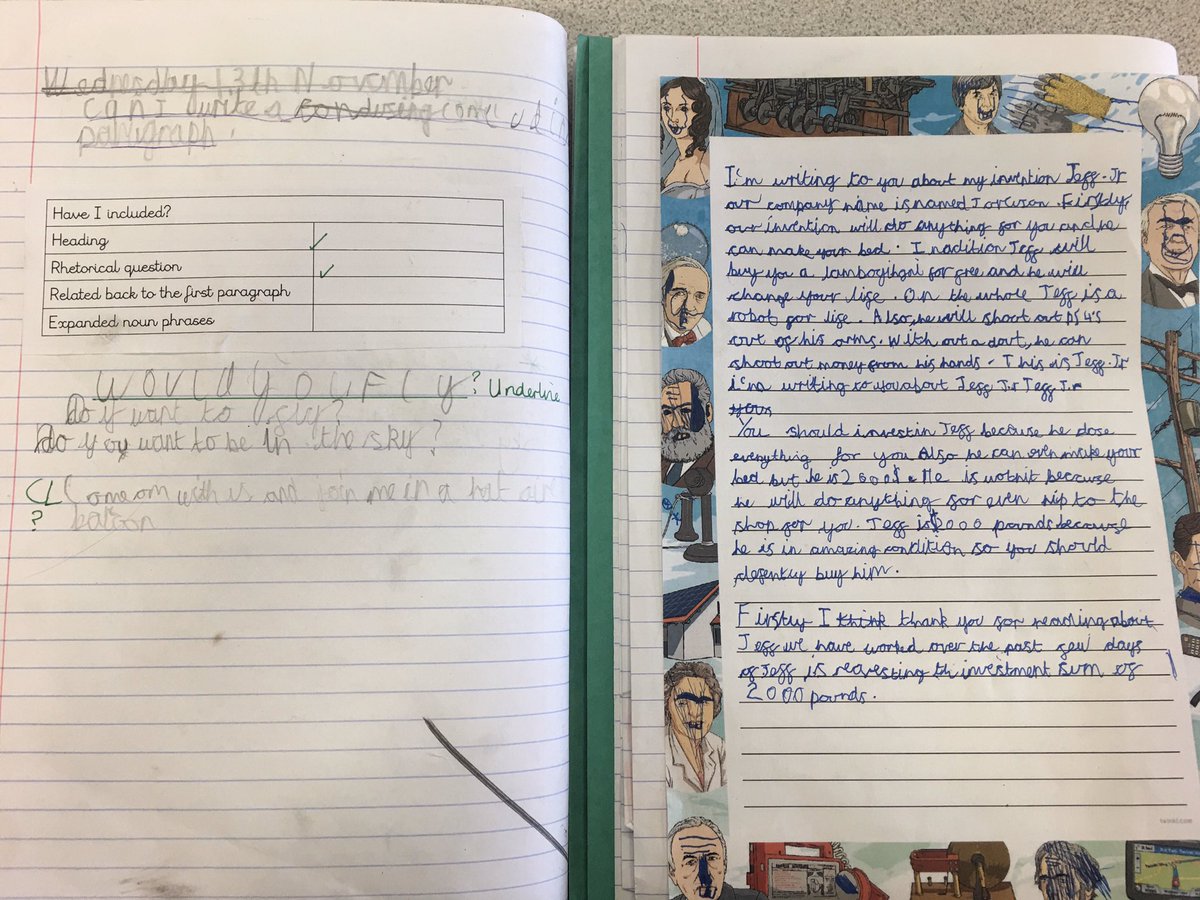 Wednesday 13th November
Can I write a conclusing concludin
paragraph.
Have I included?
Heading ✓
Rhetorical question ✓
Related back to the first paragraph
Expanded noun phrases
would you Fly? Underline
Do if want to fly?
Do you want to be in the sky?
CL Come om with us and join me in a hot air
? baloon
I'm writing to you about my invention Jeff.Jr
our company name is named Jorcuson. Firstly,
our invention will do anything for you and he
can make your bed. I nadition Jeff will
buy you a lamboyihgni for free and he will
change your life. On the whole Jeff is a
robot for life. Also, he will shoot out PS4's
out of his arms. With out a dout, he can
shoot out money from his hands. This is Jeff.Jr
i'm writing so you about Jeff Jr Jeff Jr
your
You should investin Jeff because he dose
everything for you Also he can even make your
bed but he is 2000$. He is wothit because
he will do anything for even nip to the
shop for you. Jeff is $2000 pounds because
he is in amazing condition so you should
defently buy him.
Firstly I think thank you for reading about
Jeff we have worked over the past few days
of Jeff is reavesting th investment sum of
2000 pounds.
twinkl.com